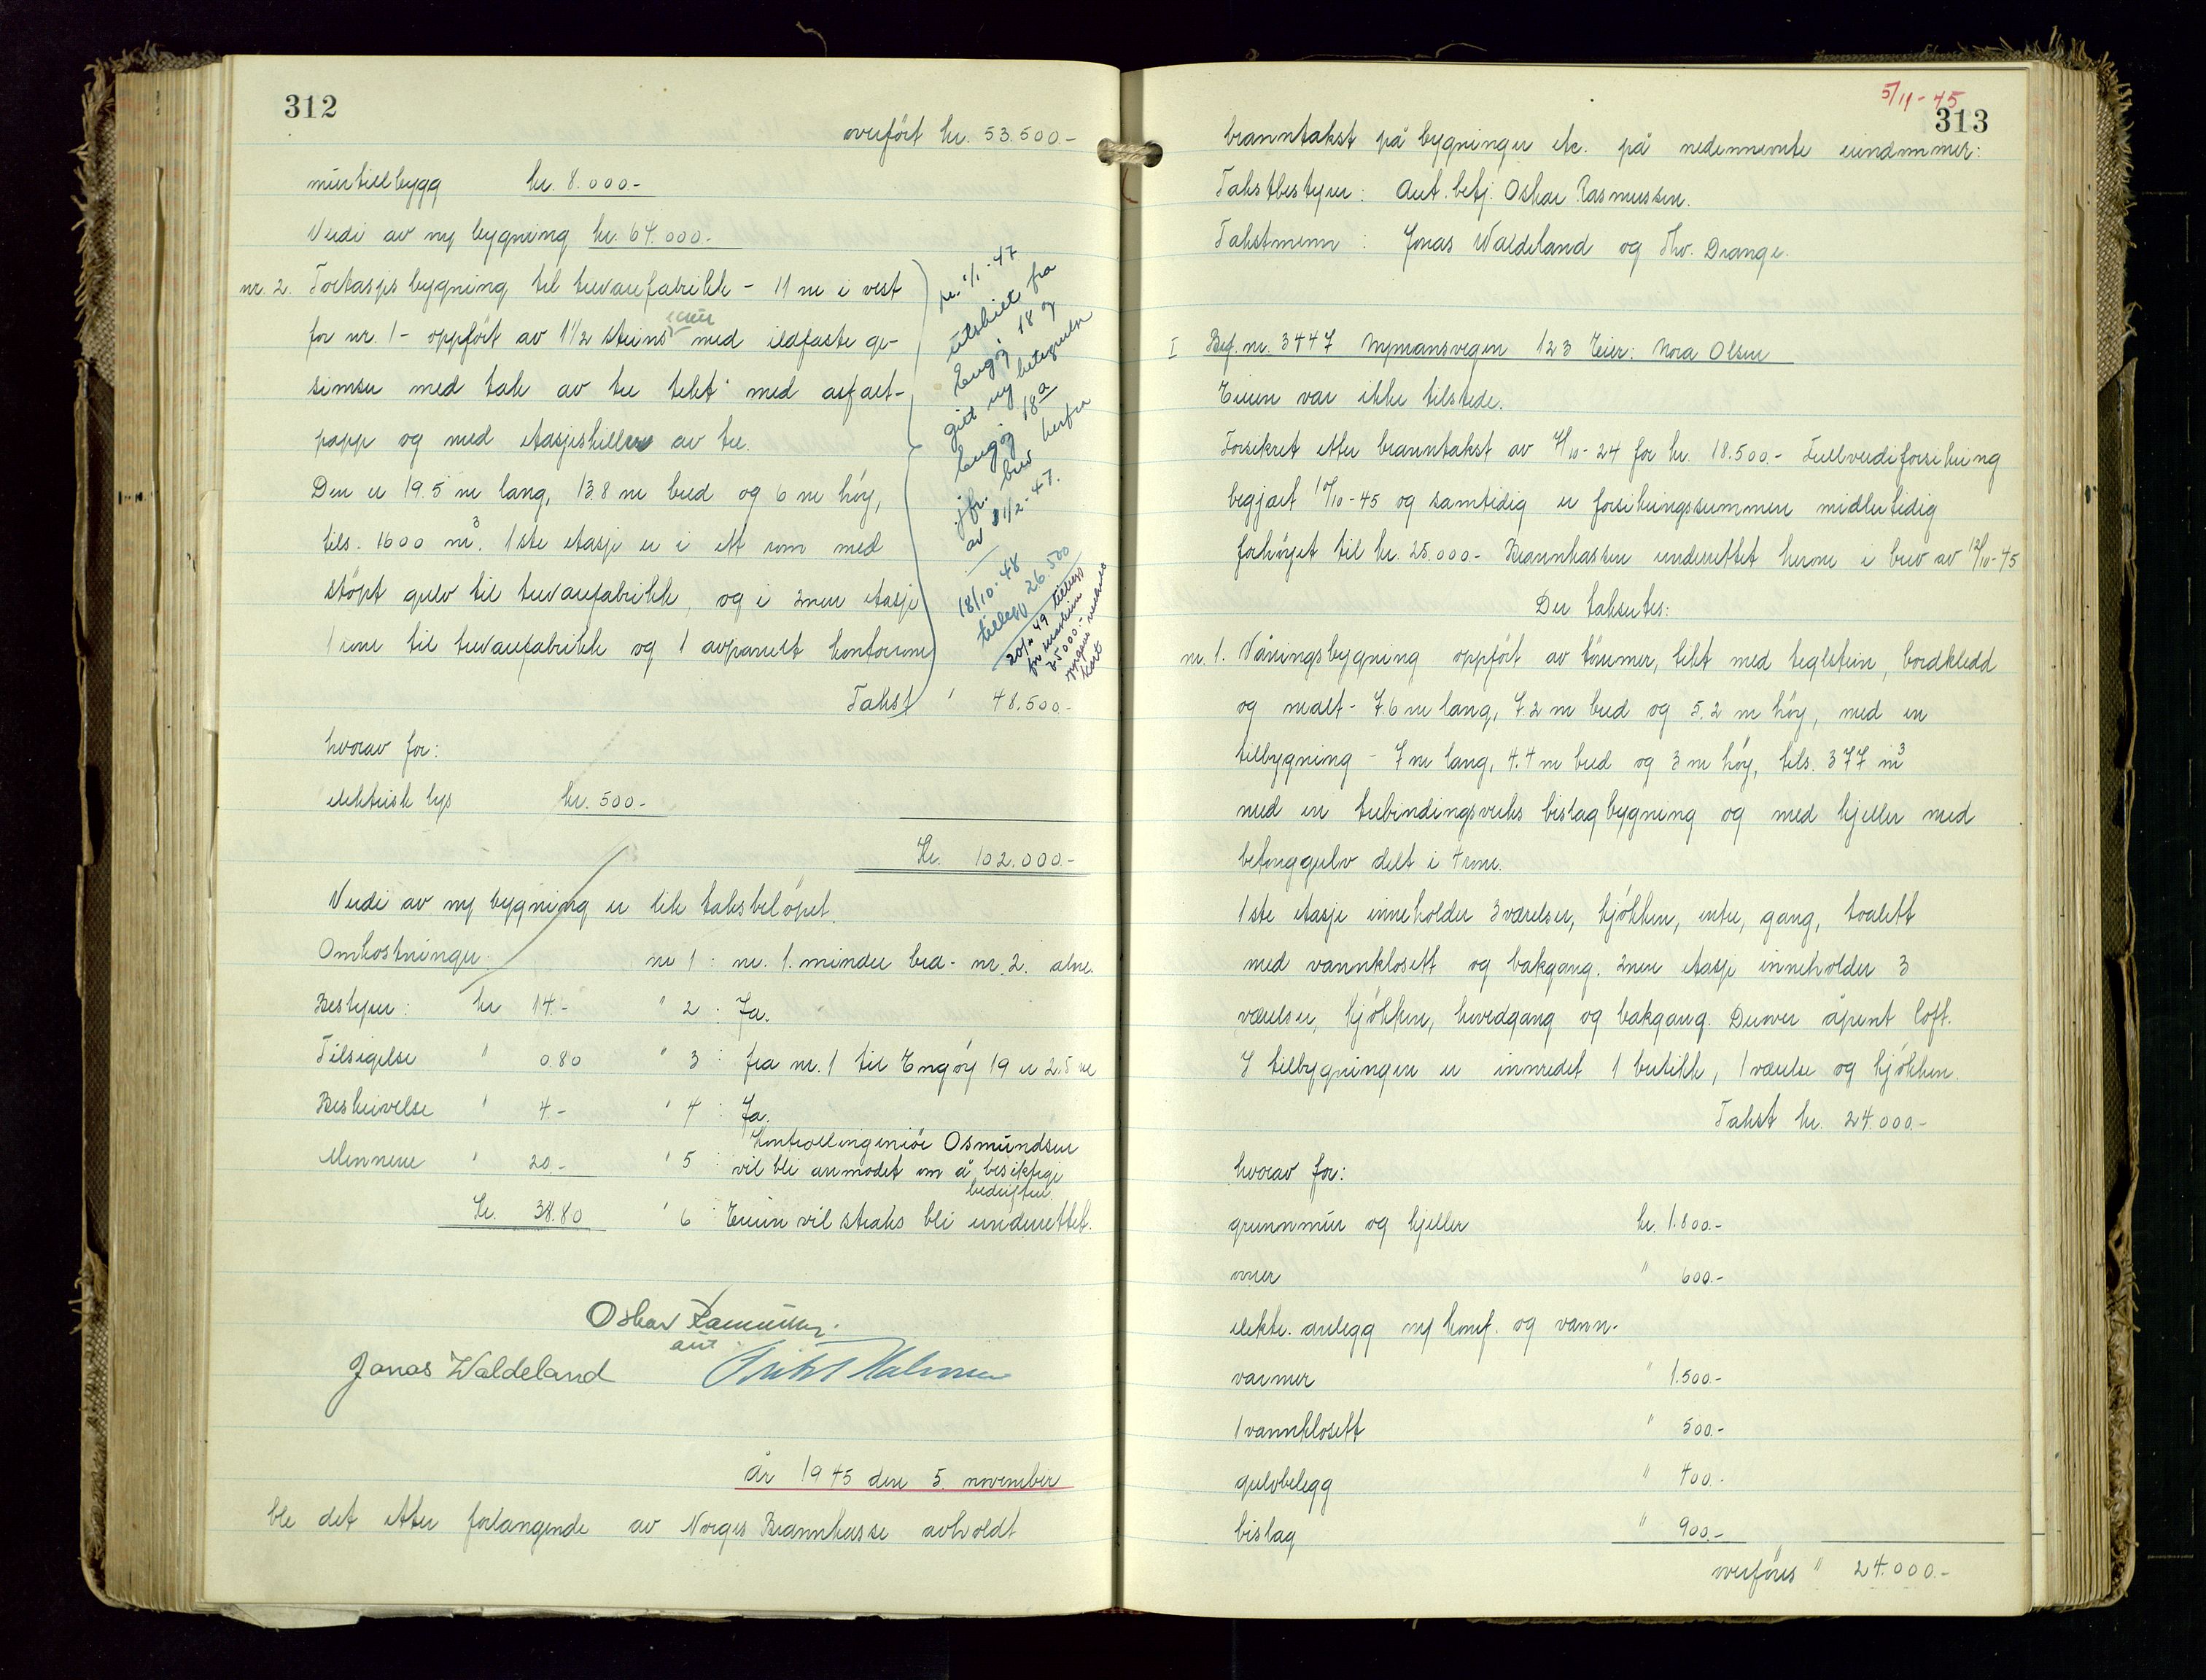 312
overført kr. 53.500.-
murtillbygg kr. 8.000-
Verdi av ny bygning kr. 64.000.-
nr. 2. Toetasjes bygning til trevarefabrikk - 11 m i vest
for nr. 1 - oppført av 1 1/2 steins mur med ildfaste ge-
simser med tak av tre tekt med asfalt-
papp og med etasjeskiller av tre.
Den er 19.5 m lang, 13.8 m bred og 6 m høy,
tils. 1600 m³. 1ste etasje er i ett rom med
støpt gulv til trevarefabrikk, og i 2nen etasje
1 rom til trevarefabrikk og 1 avpanelt kontorrom
Takst " 48.500.-
pr. 1/1-47
utskilt fra
Engøy 18 og
gitt ny betegnelse
Engøy 18a
jfr. brev herfra
av 11/2-47.
18/10-48
tillegg 26.500
49 tillegg
for maskiner
25000.-
kort
hvorav for:
elektrisk lys kr. 500.-
Kr. 102.000.-
Verdi av ny bygning er lik takstbeløpet.
Omkostninger. nr 1 : nr. 1. mindre bra - nr. 2. alm.
Bestyrer: kr 14.- " 2 : Ja.
Tilsigelse " 0.80 " 3 : fra nr. 1 til Engøy 19 er 2.5 m
Beskrivelse " 4- " 4 : Ja.
Kontrollingeniør Osmundsen
Mennene " 20.- " 5 : vil bli anmodet om å besiktige
bedriften.
Kr. 38.80 " 6 Eieren vil straks bli underrettet.
Oskar Rasmussen.
aut
Jonas Waldeland
år 1945 den 5. november
ble det etter forlangende av Norges Brannkasse avholdt
5/11-45
313
branntakst på bygninger etc. på nedennevnte eiendommer:
Takstbestyrer: Aut. betj. Oskar Rasmussen.
Takstmenn : Jonas Waldeland og Thv. Drange.
I Bef. nr. 3447 Nymansvegen 123 Eier: Nora Olsen
Eieren var ikke tilstede.
Forsikret etter branntakst av 7/10-24 for kr. 18.500.- Fullverdiforsikring
begjært 10/10-45 og samtidig er forsikringssummen midlertidig
forhøyet til kr. 25.000.- Brannkassen underrettet herom i brev av 12/10-45
Der takseres:
nr. 1. Våningsbygning oppført av tømmer, tekt med teglstein, bordkledd
og malt - 7.6 m lang, 7.2 m bred og 5.2 m høy, med en
tilbygning - 7 m lang, 4.4 m bred og 3 m høy, tils. 377 m³
med en trebindingsverks bislagbygning og med kjeller med
betonggulv delt i 4 rom.
1ste etasje inneholder 3 værelser, kjøkken, entre, gang, toalett
med vannklosett og bakgang. 2nen etasje inneholder 3
værelser, kjøkken, hovedgang og bakgang. Derover åpent loft.
I tilbygningen er innredet 1 butikk, 1 værelse og kjøkken.
Takst kr. 24.000.-
hvorav for:
grunnmur og kjeller kr. 1.800.-
ovner " 600.-
elektr. anlegg m/ komf. og vann-
varmer " 1.500.-
1 vannklosett " 500.-
gulvbelegg " 400.-
bislag " 900.-
overføres " 24.000.-